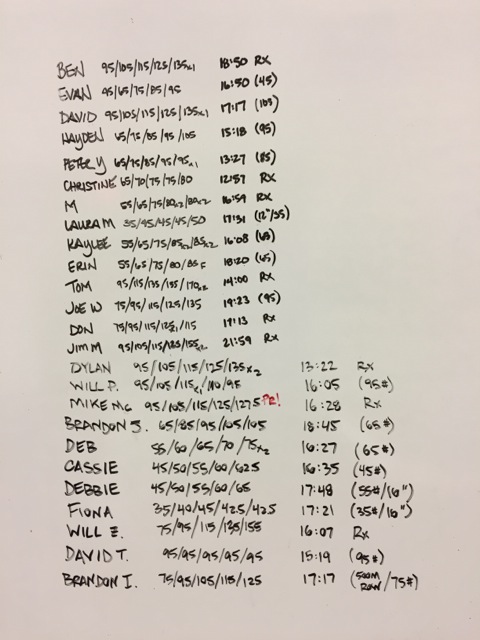 BEN 95/105/115/125/135x1 18:50 RX
EVAN 45/65/75/85/95 16:50 (45)
DAVID 95/105/115/125/135x1 17:17 (103)
HAYDEN 65/75/85/95/105 15:18 (95)
PETER Y 65/75/85/95/95x1 13:27 (85)
CHRISTINE 65/70/75/75/80 12:57 RX
M 55/65/75/80x2/80x2 16:59 RX
LAURA M 35/45/45/45/50 17:31 (12"/35)
KAYLEE 55/65/75/85x2/85x2 16:08 (63)
ERIN 55/65/75/80/85F 18:20 (65)
TOM 95/115/135/155/170x2 14:00 RX
JOE W 75/95/115/125/135 19:23 (95)
DON 75/95/115/125x1/115 17:13 RX
JIM M 95/105/115/125/155x2 21:59 RX
DYLAN 95/105/115/125/135x2 13:22 Rx
WILL P. 95/105/115x1/110/95 16:05 (95#)
MIKE MC 95/105/115/125/127.5 PR! 16:28 Rx
BRANDON S. 65/85/95/105/105 18:45 (65#)
DEB 55/60/65/70/75x2 16:27 (65#)
CASSIE 45/50/55/60/62.5 16:35 (45#)
DEBBIE 45/50/55/60/65 17:48 (55#/16")
FIONA 35/40/45/42.5/42.5 17:21 (35#/16")
WILL E. 75/95/115/135/155 16:07 Rx
DAVID T. 95/95/95/95/95 15:19 (95#)
BRANDON I. 75/95/105/115/125 17:17 (500M ROW/75#)